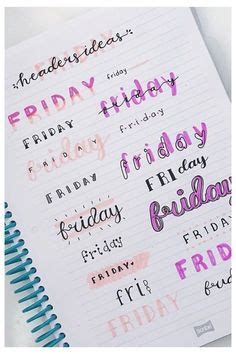 FRIDAY
headers ideas
FRIDAY
friday
friday
FRIDAY
f-r-i-d-a-y
friday
FRIDAY
FRIDAY
friday
friday
FRIday
FRIDAY
friday
friday
friday
FRIDAY
FRIDAY
FRIDAY
fri
friday
FRIDAY